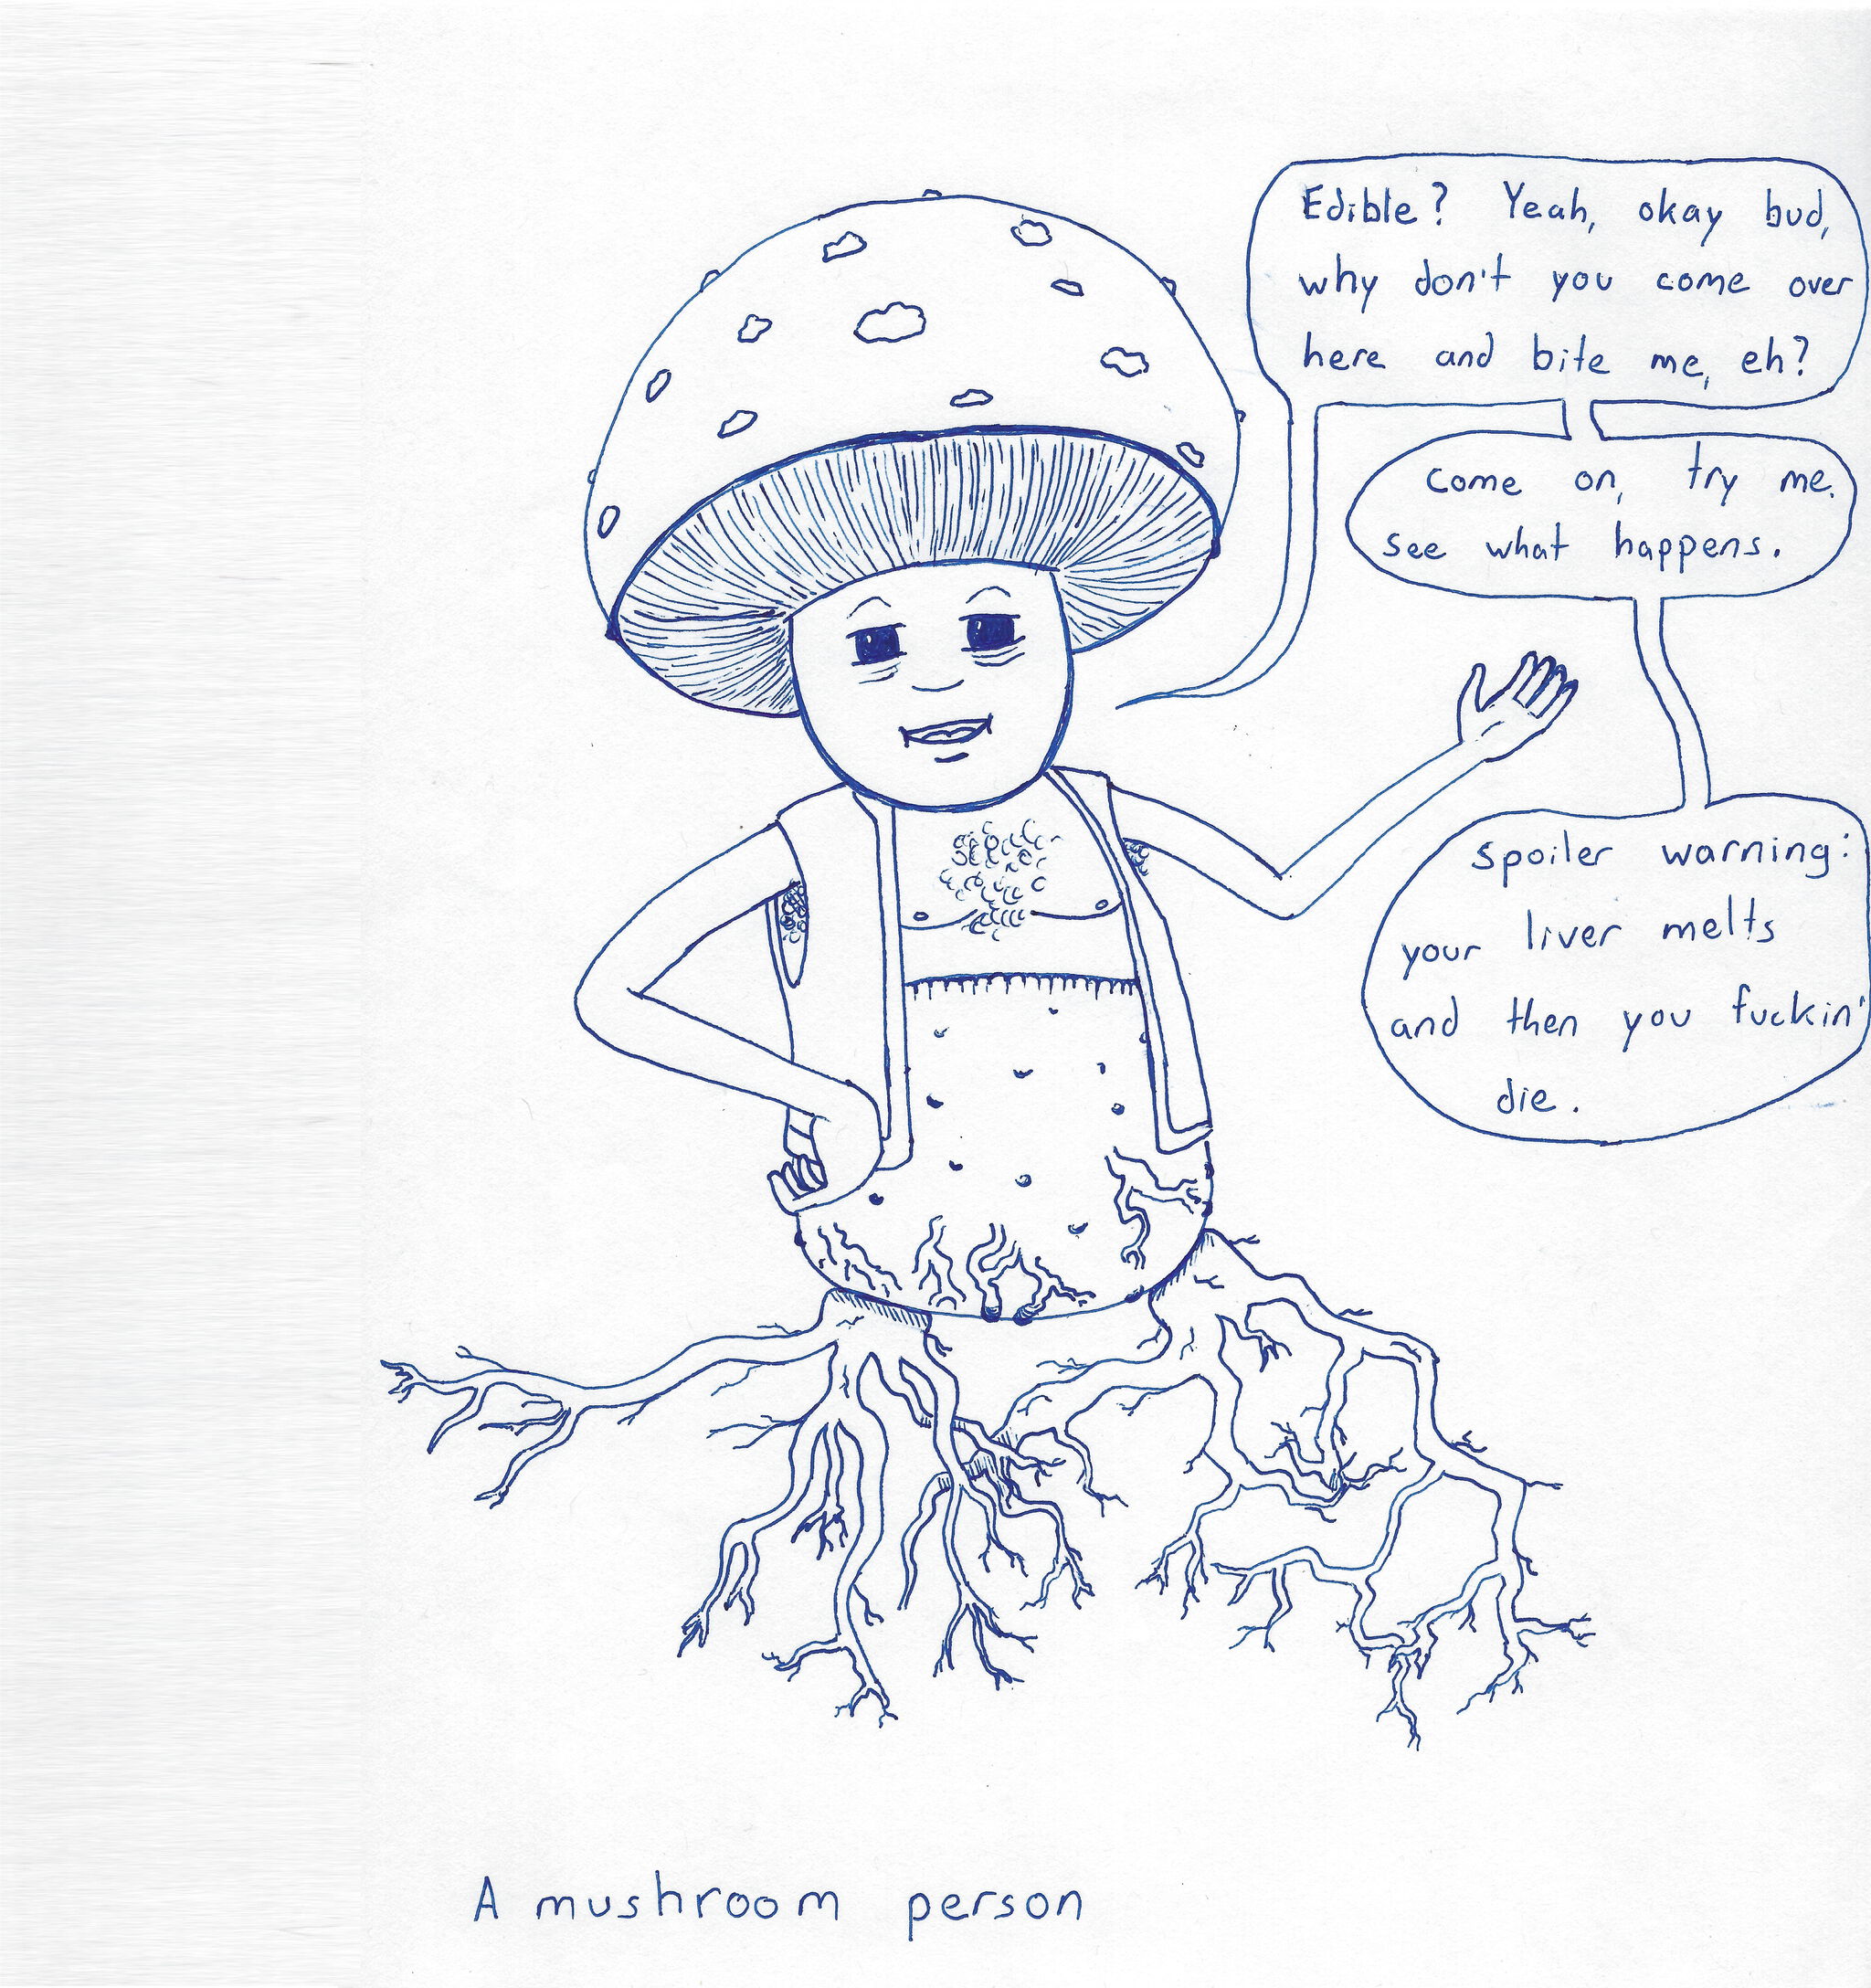 Edible? Yeah, okay bud,
why don't you come over
here and bite me, eh?
Come on, try me.
See what happens.
Spoiler warning:
your liver melts
and then you fuckin'
die.
A mushroom person